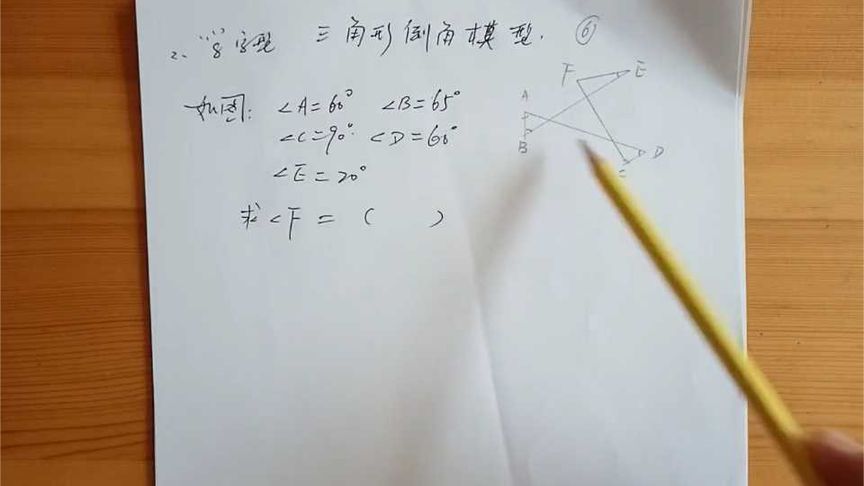 2、"8"字型 三角形倒角模型. ⑥
如图: ∠A=60° ∠B=65°
∠C=90° ∠D=60°
∠E=20°
求∠F=( )
F E
A
B D
C